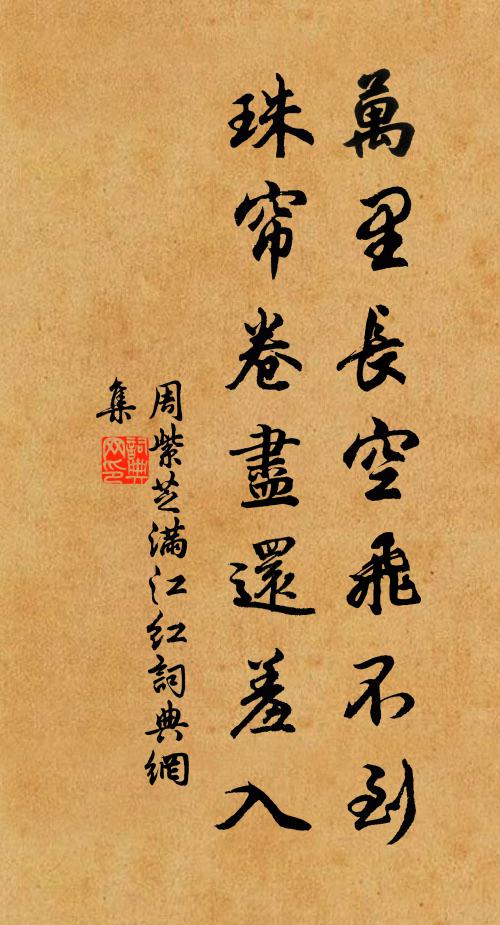 萬里長空飛不到
珠帘卷盡還羞入
周紫芝滿江红詞典網
集
詞典网印